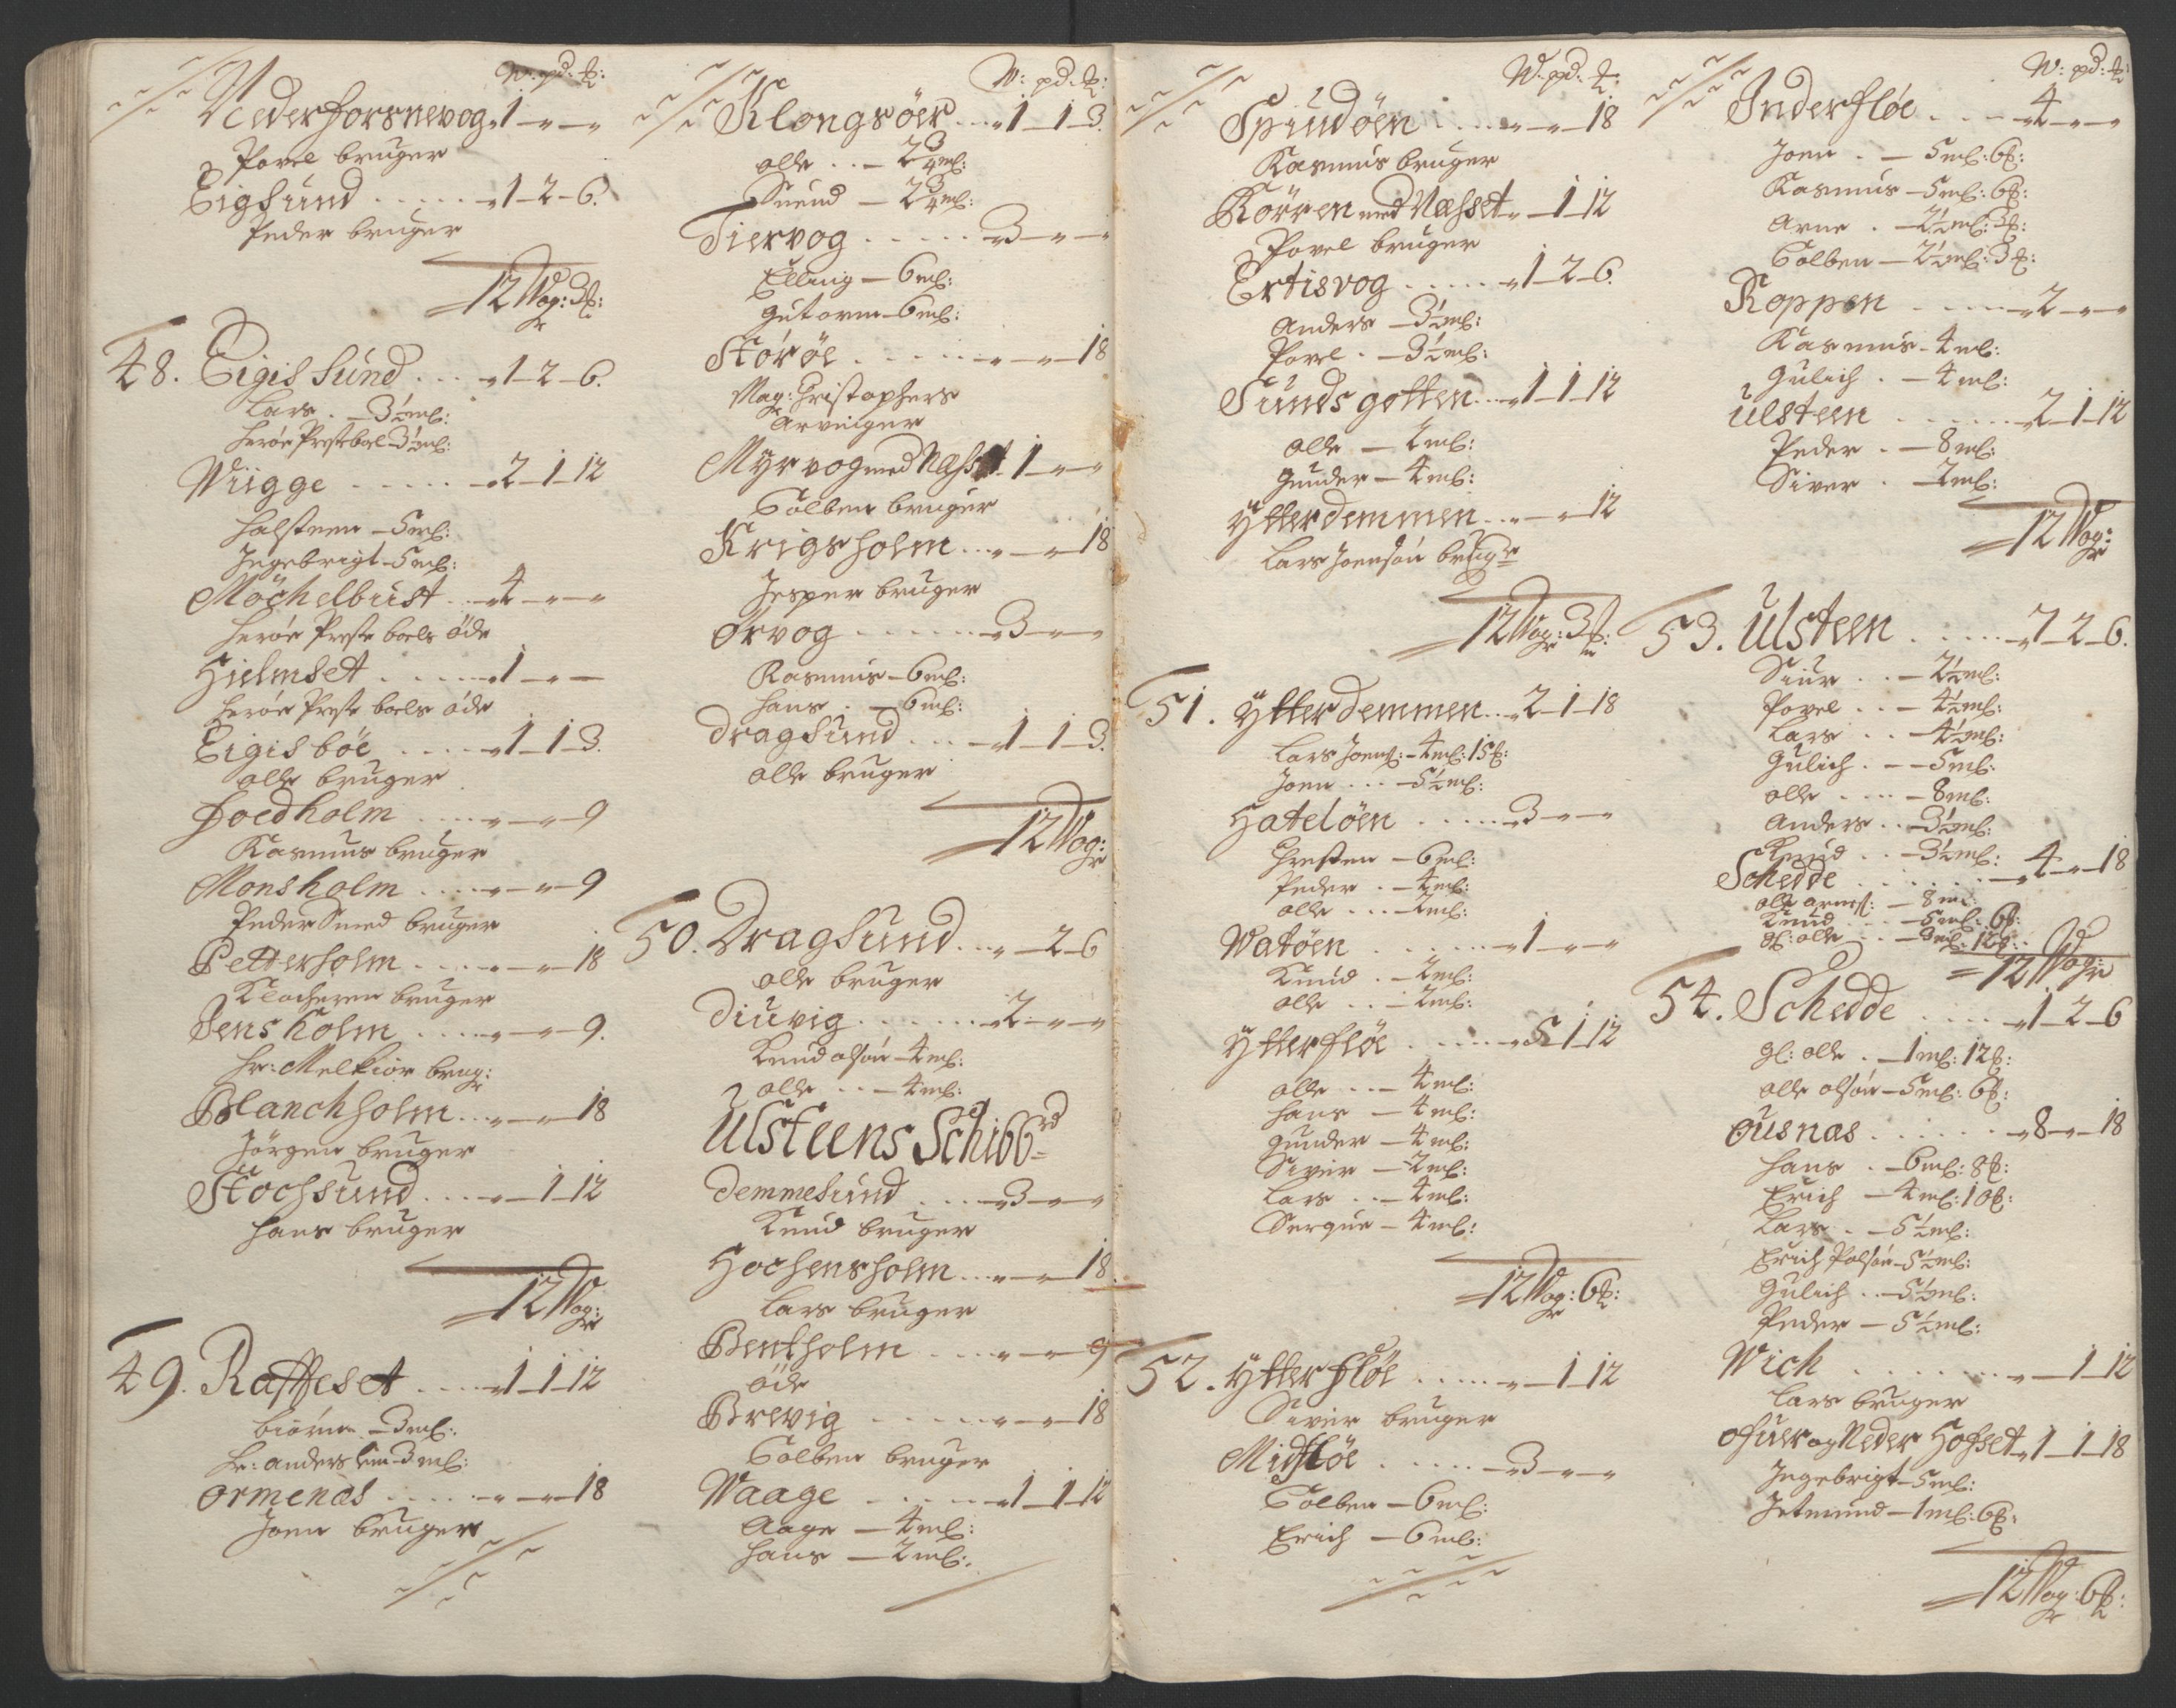 W: pd: ℔:
Nederforsnevog „1 – „ – „
Povel bruger
Eigsund ..... „1 – 2 – 6.
Peder bruger
12 Wog: 3 ℔:
48. Eigissund ... „1 – 2 – 6.
Lars . – 3½ ml:
Herøe Presteboel 3½ ml:
Wiigge ..... „2 – 1 – 12
Halsteen – 5 ml:
Ingebrigt – 5 ml:
Möchelbust .. „4 – „ – „
Herøe Preste boels öde
Hielmset ..... „1 – „ –
Herøe Preste boels öde
Eigisböe ..... „1 – 1 – 3.
Olle bruger
Foedholm .... „ – „ – 9
Rasmus bruger
Monsholm .... „ – „ – 9
Peder Smed bruger
Petterholm .... „ – „ – 18
Klocheren bruger
Jensholm .... „ – „ – 9.
Hr: Melkior brug:
Blanchholm ... „ – „ – 18
Jörgen bruger
Stochsund ... „ – 1 – 12
Hans bruger
12 Wog:
49. Raffeset .... „1 – 1 – 12
Biörn – 3 ml:
Hr: Anders – 3 ml:
Ormenas .... „ – „ – 18
Joen bruger
W: pd: ℔:
Klongsöer ... „1 – 1 – 3.
Olle .. – 2¾ ml:
Suend – 2¾ ml:
Tiervog ..... „3 – „ – „
Elling – 6 ml:
Gutorm – 6 ml:
Störöe ..... „ – „ – 18
Mag: Christophers
Arvinger
Myrvog med Næsset „1 – „ – „
Tolben bruger
Krigsholm ... „ – „ – 18
Jesper bruger
Örvog ...... „3 – „ – „
Rasmus – 6 ml:
Hans . – 6 ml:
Dragsund ... „1 – 1 – 3.
Olle bruger
12 Wog:
50. Dragsund ... „ – 2 – 6
Olle bruger
Diuvig ...... „2 – „ – „
Knud Olsön – 4 ml:
Olle .. – 4 ml:
Ulsteens Schibbrd
Demmesund .... „3 – „ – „
Knud bruger
Hochensholm ... „ – „ – 18.
Lars bruger
Bentholm .... „ – „ – 9
öde
Brevig ..... „ – „ – 18
Tolben bruger
Waage ..... „1 – 1 – 12
Aage – 4 ml:
Hans – 2 ml:
W: pd: ℔:
Spiudöen .... „ – „ – 18
Rasmus bruger
Körren med Næsset „ – 1 – 12
Povel bruger
Ertisvog ..... „1 – 2 – 6.
Anders – 3½ ml:
Povel . – 3½ ml:
Sundsgotten ... „1 – 1 – 12
Olle – 2 ml:
Gunder – 4 ml:
Ytterdemmen ... „ – „ – 12
Lars Joensön bruger
12 Wog: 3 ℔:
51. Ytterdemmen .. „2 – 1 – 18
Lars Joens: – 4 ml: 15 ℔:
Joen ... – 5½ ml:
Hatelöen ..... „3 – „ – „
Chresten – 6 ml:
Peder . – 4 ml:
Olle ... – 2 ml:
Watöen ..... „1 – „ – „
Knud . – 2 ml:
Olle .. – 2 ml:
Ytterflöe ..... „5 – 1 – 12
Olle .. – 4 ml:
Hans – 4 ml:
Gunder – 4 ml:
Siver – 2 ml:
Lars .. – 4 ml:
Serque – 4 ml:
12 Wog: 6 ℔:
52. Ytterflöe ..... „ – 1 – 12
Siver bruger
Midflöe ..... „3 – „ – „
Tolben – 6 ml:
Erich – 6 ml:
W: pd: ℔:
Inderflöe .... „4 – „ – „
Joen . – 5 ml: 6 ℔:
Rasmus – 5 ml: 6 ℔:
Arne . – 2½ ml: 3 ℔:
Tolben – 2½ ml: 3 ℔:
Roppen ..... „2 – „ – „
Rasmus – 4 ml:
Gulich . – 4 ml:
Ulsteen ..... „2 – 1 – 12
Peder . – 8 ml:
Siver . – 2 ml:
12 Wog:
53. Ulsteen ..... „7 – 2 – 6.
Siur .. – 2½ ml:
Povel .. – 4½ ml:
Lars .. – 4½ ml:
Gulich . – 5 ml:
Olle .... – 8 ml:
Anders .. – 3½ ml:
Knud .. – 3½ ml:
Schedde ...... „4 – „ – 18
Olle Arns: – 8 ml:
Knud ... – 5 ml: 6 ℔:
Gl: Olle .. – 3 ml: 12 ℔:
12 Wog:
54. Schedde .... „1 – 2 – 6
Gl: Olle . – 1 ml: 12 ℔:
Olle Olsön – 5 ml: 6 ℔:
Ousnas ...... „8 – „ – 18
Hans . – 6 ml: 8 ℔:
Erich – 4 ml: 10 ℔:
Lars .. – 5½ ml:
Erich Polsön – 5½ ml:
Gulich .. – 5½ ml:
Peder – 5½ ml:
Wich ....... „ – 1 – 12
Lars bruger
Ofuer og Neder Hofset „1 – 1 – 18
Ingebrigt – 5 ml:
Jetmund – 1 ml: 6 ℔:
12 Wog: 6 ℔: